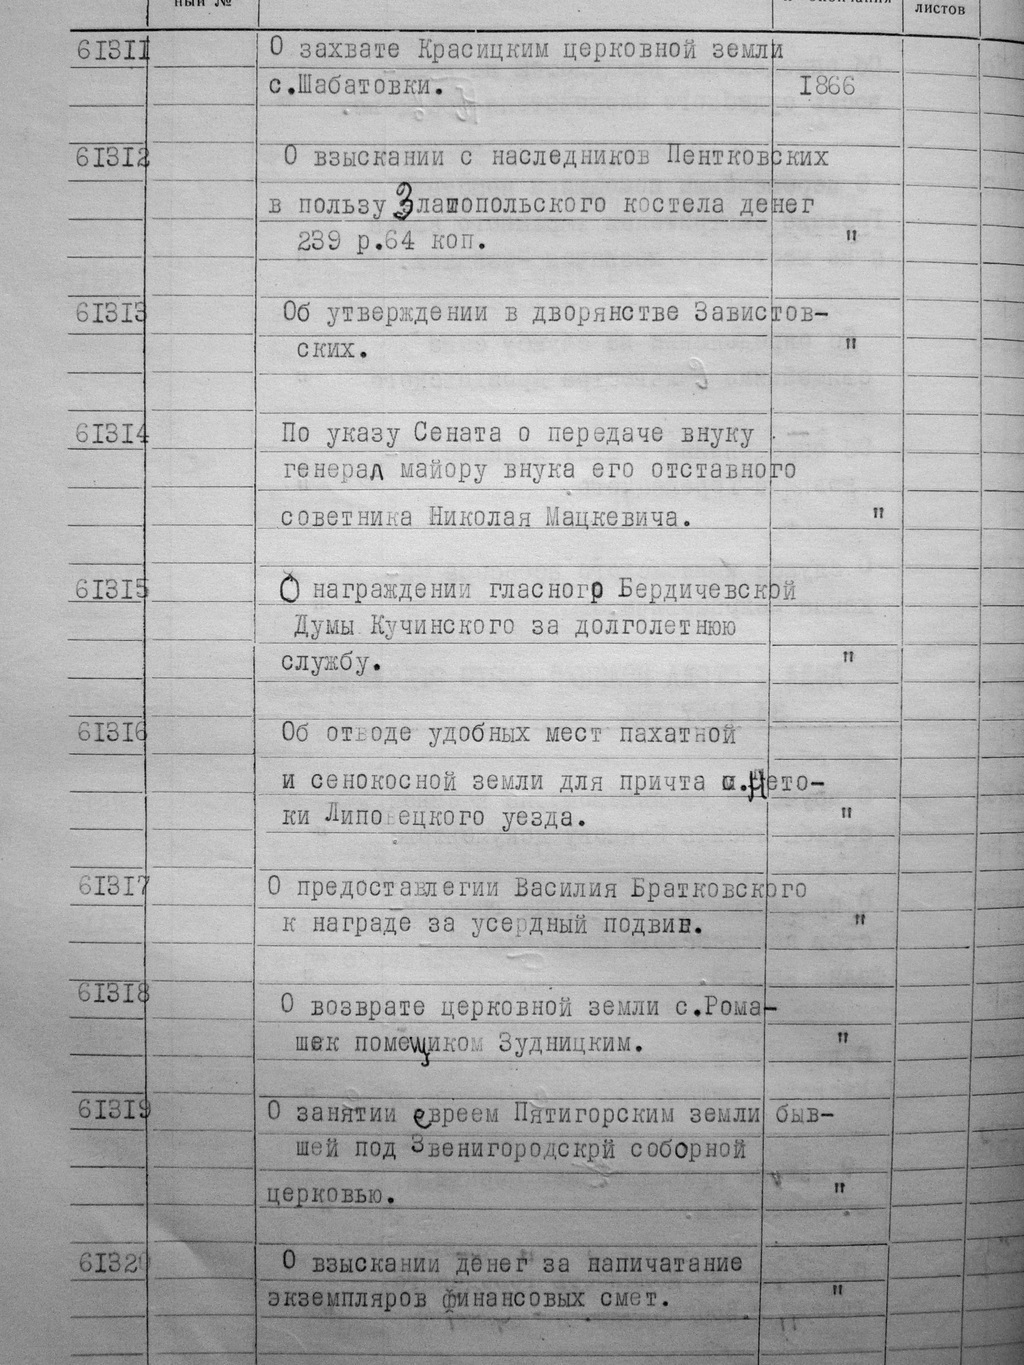 ный №
листов
61311 О захвате Красицким церковной земли
с.Шабатовки. 1866
61312 О взыскании с наследников Пентковских
в пользу Златопольского костела денег
239 р.64 коп. "
61313 Об утверждении в дворянстве Завистов-
ских. "
61314 По указу Сената о передаче внуку
генерал майору внука его отставного
советника Николая Мацкевича. "
61315 О награждении гласного Бердичевской
Думы Кучинского за долголетнюю
службу. "
61316 Об отводе удобных мест пахатной
и сенокосной земли для причта
ки Липовецкого уезда. "
61317 О предоставлегии Василия Братковского
к награде за усердный подвиг. "
61318 О возврате церковной земли с.Рома-
шек помещиком Зудницким. "
61319 О занятии евреем Пятигорским земли быв-
шей под Звенигородскрй соборной
церковью. "
61320 О взыскании денег за напичатание
экземпляров финансовых смет. "